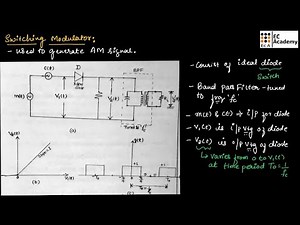 Switching Modulator:
- Used to generate AM signal.
EC Academy
ECA
c(t)
D
BPF
m(t)
V₁(t)
V₂(t)
(a)
- Consist of ideal diode
Switch
- Band pass Filter - tuned
to freq fc
- m(t) & c(t) ⇒ i/p for diode
- V₁(t) is i/p Vtg of diode
- V₂(t) is o/p Vtg of diode
↳ varies from 0 to V₁(t)
at time period T₀ = 1/fc
(b)